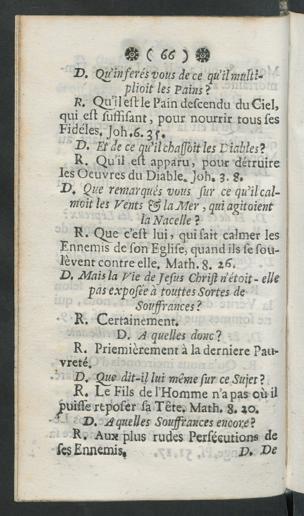 ( 66 )
D. Qu'inferés vous de ce qu'il multi-
plioit les Pains?
R. Qu'il est le Pain descendu du Ciel,
qui est suffisant, pour nourrir tous ses
Fidéles. Joh. 6. 35.
D. Et de ce qu'il chassoit les Diables?
R. Qu'il est apparu, pour détruire
les Oeuvres du Diable. Joh. 3. 8.
D. Que remarqués vous sur ce qu'il cal-
moit les Vents & la Mer, qui agitoient
la Nacelle?
R. Que c'est lui, qui sait calmer les
Ennemis de son Eglise, quand ils se sou-
lèvent contre elle. Math. 8. 26.
D. Mais la Vie de Jesus Christ n'étoit-elle
pas exposée à touttes Sortes de
Souffrances?
R. Certainement.
D. A quelles donc?
R. Priemièrement à la derniere Pau-
vreté.
D. Que dit-il lui méme sur ce Sujet?
R. Le Fils de l'Homme n'a pas où il
puisse reposer sa Tête. Math. 8. 20.
D. A quelles Souffrances encore?
R. Aux plus rudes Persécutions de
ses Ennemis. D. De